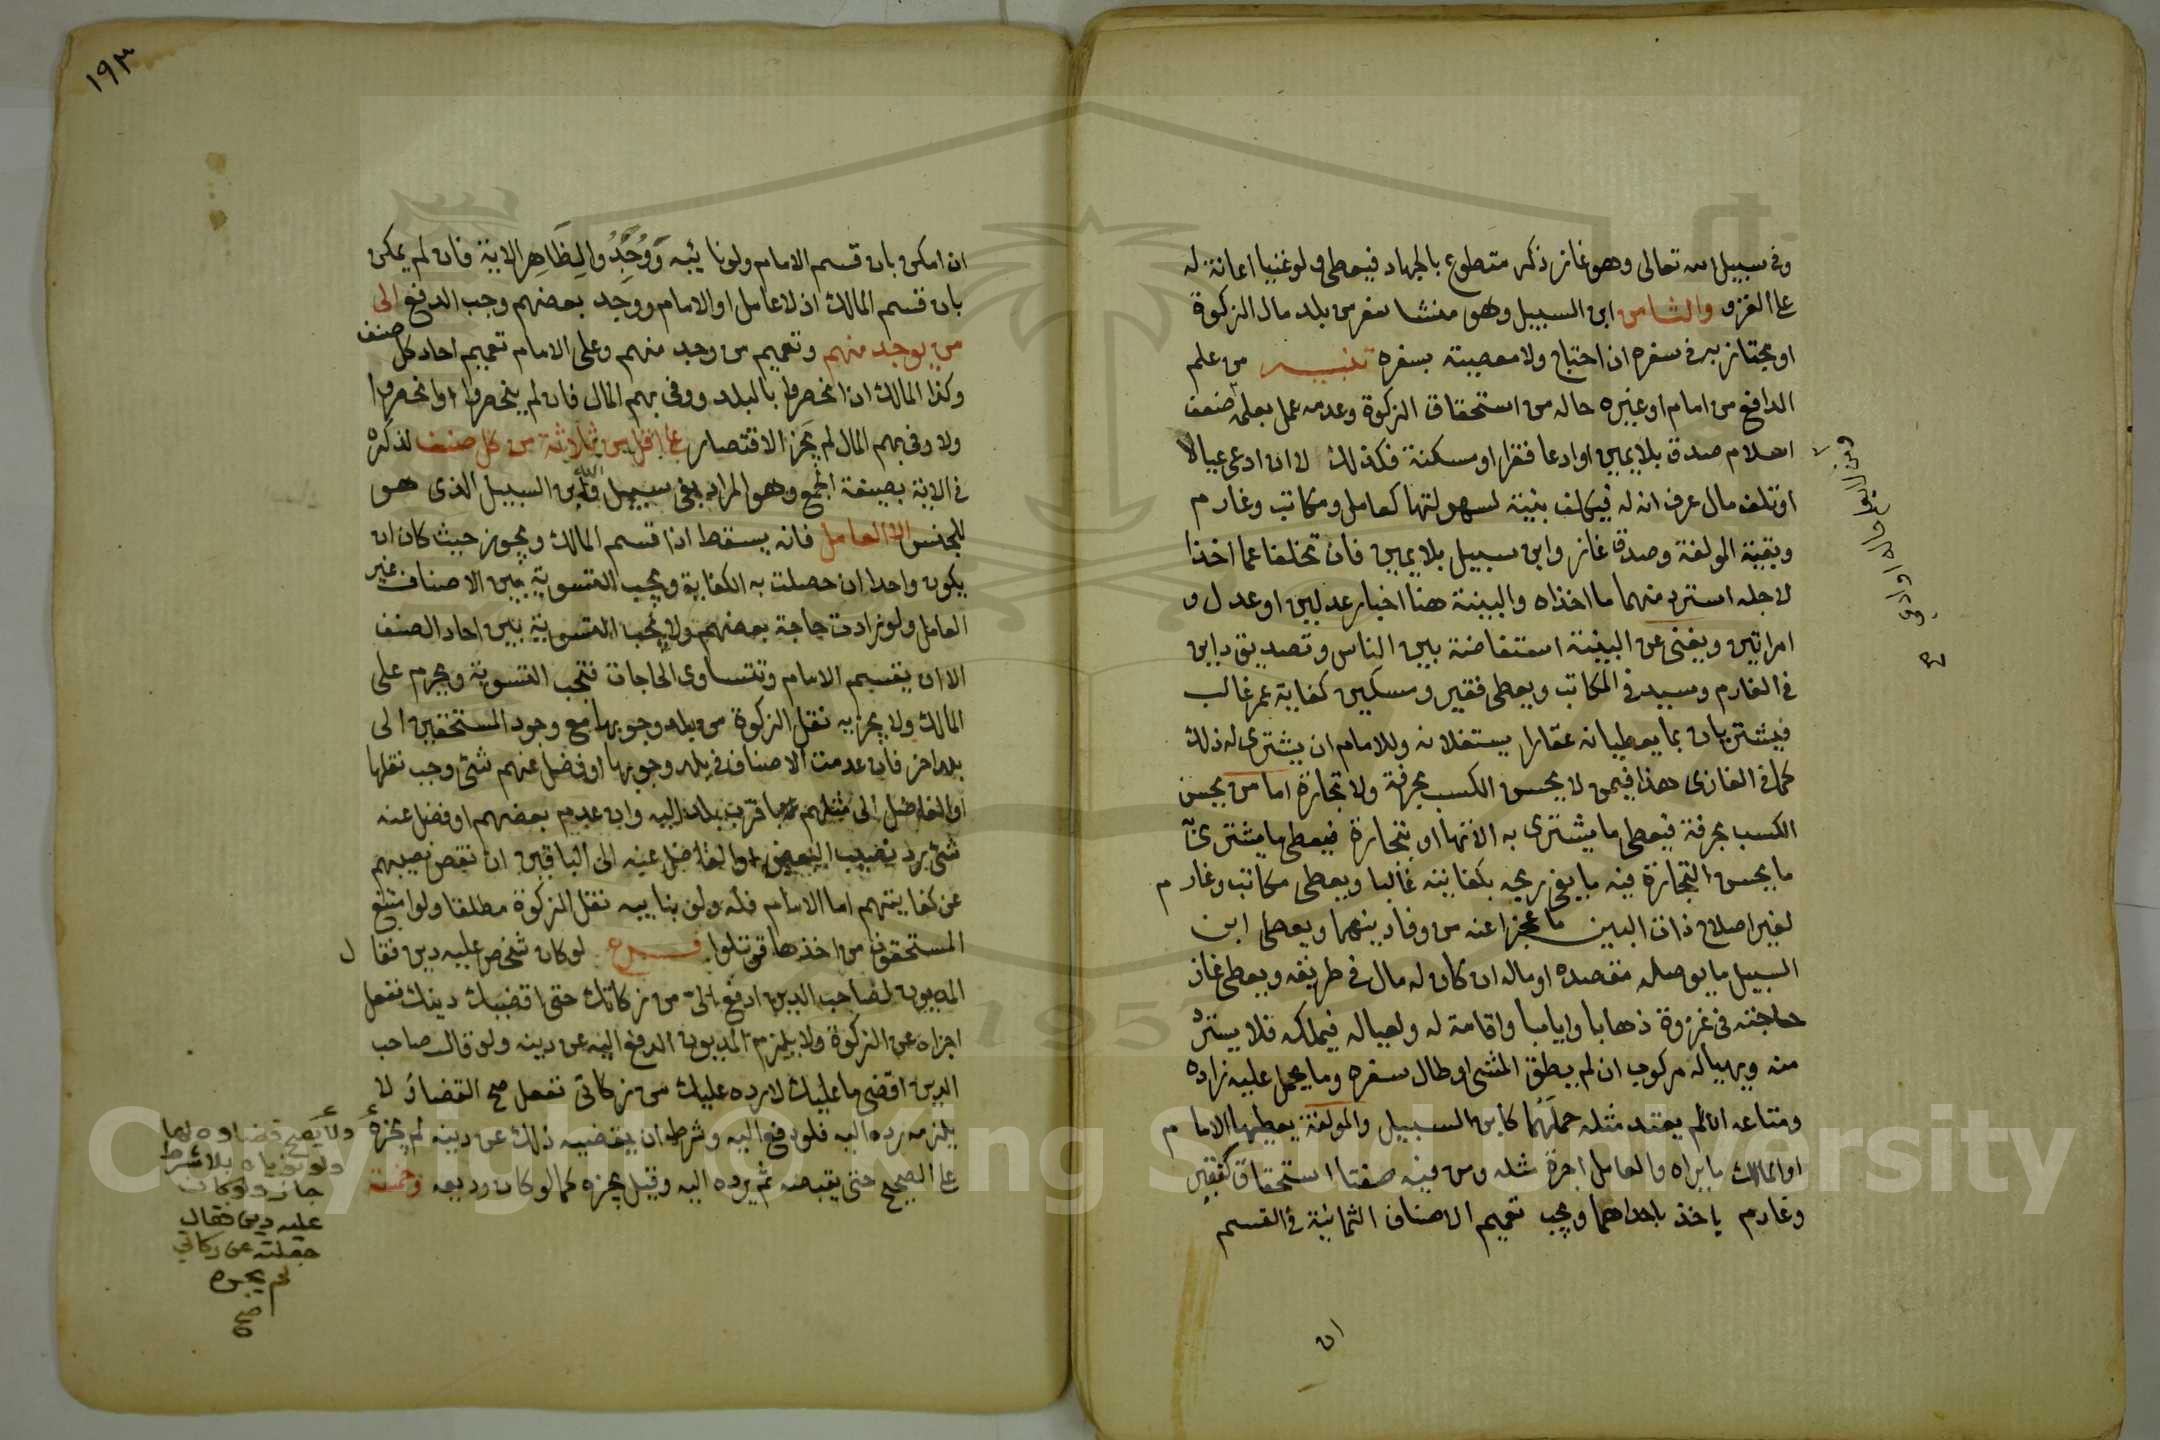 وفي سبيل الله تعالى وهو غاز ذكر متطوع بالجهاد فيعطى ولو غنيا اعانة له
على الغزو والثامن ابن السبيل وهو منشا سفر من بلد مال الزكوة
او مجتاز به في سفره ان احتاج ولا معصية بسفره تنبيه من علم
الدافع من امام او غيره حاله من استحقاق الزكوة وعدمه عمل بعلمه ومن لا يعلم حاله ضعف
اسلام صدق بلا يمين او ادعا فقرا او مسكنة فكذلك لا ان ادعى عيالا
او تلف مال عرف انه له فيكلف بينة لسهولتها كعامل ومكاتب وغارم
وبقية المولفة وصدق غاز وابن سبيل بلا يمين فان تخلفا عما اخذا
لاجله استرد منهما ما اخذاه والبينة هنا اخبار عدلين او عدل و
امراتين ويغنى عن البينة استفاضة بين الناس وتصديق داين
في الغارم وسيد في المكاتب ويعطى فقير ومسكين كفاية عمر غالب
فيشتريان بما يعطيانه عقارا يستغلانه وللامام ان يشترى له ذلك
كما في الغازى هذا فيمن لا يحسن الكسب بحرفة ولا تجارة اما من يحسن
الكسب بحرفة فيعطى ما يشترى به الاتها او بتجارة فيعطى ما يشترى به
ما يحسن التجارة فيه ما يفي ربحه بكفايته غالبا ويعطى مكاتب وغارم
لغير اصلاح ذات البين ما عجزا عنه من وفا دينهما ويعطى ابن
السبيل ما يوصله مقصده او ماله ان كان له مال في طريقه ويعطى غاز
حاجته في غزوة ذهابا وايابا واقامة له ولعياله فيملكه فلا يسترد
منه ويهيا له مركوب ان لم يطق المشى او طال سفره وما يحمل عليه زاده
ومتاعه ان لم يعتد مثله حملهما كابن السبيل والمولفة يعطيها الامام
او المالك ما يراه والعامل اجرة مثله ومن فيه صفتا استحقاق كفقير
وغارم ياخذ باحداهما ويجب تعميم الاصناف الثمانية في القسم
ان
١٩٣
ان امكن بان قسم الامام ولو نائبه ووجدوا لظاهر الاية فان لم يمكن
بان قسم المالك اذ لا عامل او الامام ووجد بعضهم وجب الدفع الى
من يوجد منهم وتعميم من وجد منهم وعلى الامام تعميم احاد كل صنف
وكذا المالك اذا انحصروا بالبلد ووفى بهم المال فان لم ينحصروا او انحصروا
ولا وفى بهم المال لم يجز الاقتصار على اقل من ثلاثة من كل صنف لذكره
في الاية بصيغة الجمع وهو المراد بفي سبيل الله وابن السبيل الذى هو
للجنس الا العامل فانه يسقط اذا قسم المالك ويجوز حيث كان ان
يكون واحدا ان حصلت به الكفاية ويجب التسوية بين الاصناف غير
العامل ولو زادت حاجة بعضهم ولا تجب التسوية بين احاد الصنف
الا ان يقسم الامام وتتساوى الحاجات فتجب التسوية ويحرم على
المالك ولا يجزيه نقل الزكوة من بلد وجوبها مع وجود المستحقين الى
بلد اخر فان عدمت الاصناف في بلد وجوبها او فضل عنهم شئ وجب نقلها
او الفاضل الى مثلهم باقرب بلد اليه وان عدم بعضهم او فضل عنه
شئ رد نصيب البعض او الفاضل عنه الى الباقين ان نقص نصيبهم
عن كفايتهم اما الامام فله ولو بنايبه نقل الزكوة مطلقا ولو امتنع
المستحقون من اخذها قوتلوا فرع لو كان شخص عليه دين فقال
المديون لصاحب الدين ادفع الي من زكاتك حتى اقضيك دينك ففعل
اجزاه عن الزكوة ولا يلزم المديون الدفع اليه عن دينه ولو قال صاحب
الدين اقضى ما عليك لارده عليك من زكاتى ففعل صح القضا ولا
يلزمه رده اليه فلو دفع اليه وشرط ان يقضيه ذلك عن دينه لم يجزه
على الصحيح حتى يقبضه ثم يرده اليه وقيل يجزه كما لو كان وديعه
ولا يصح قضاوه لها
ولو نوياه بلا شرط
جاز ولو كان
عليه دين فقال
جعلته عن زكاتي
لم يجزه
صح
Copyright © King Saud University
1957